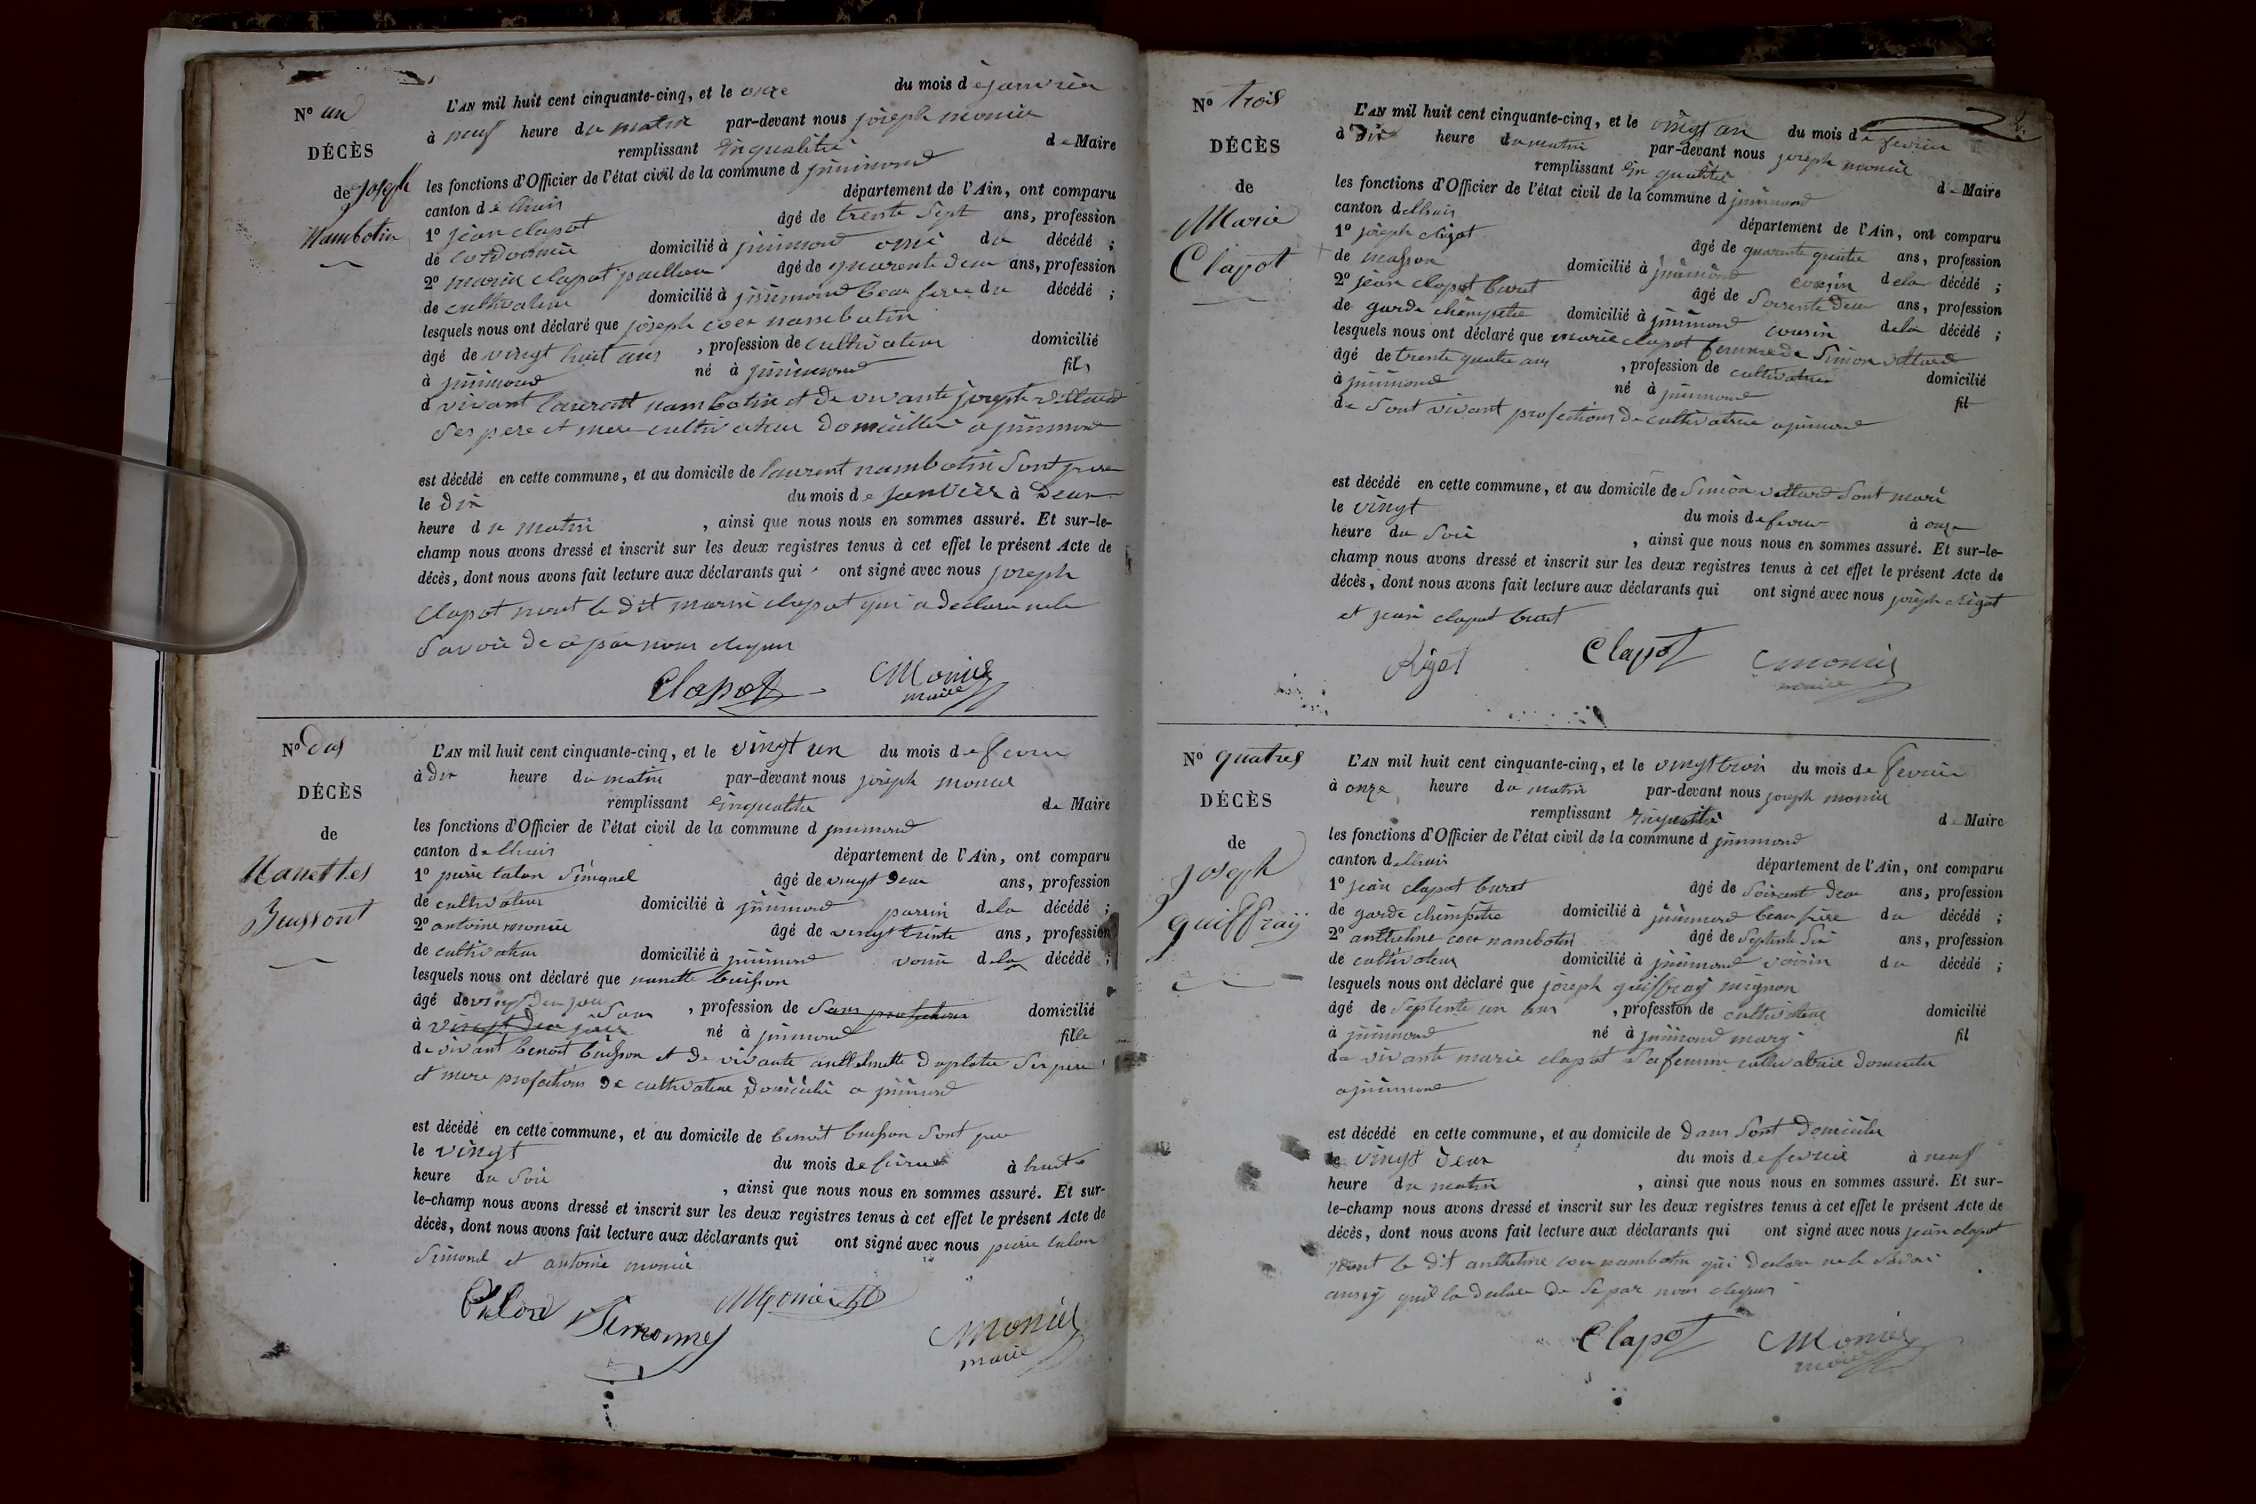 N° un
DÉCÈS
de Joseph
Nambotin
L'AN mil huit cent cinquante-cinq, et le onze du mois de janvier
à neuf heure du matin par-devant nous joseph monier
remplissant en qualité de Maire
les fonctions d'Officier de l'état civil de la commune d jnimond
canton de lhuis département de l'Ain, ont comparu
1° jean clapot âgé de trente sept ans, profession
de cordonnier domicilié à jnimond du décédé ;
2° marin clapot paillon âgé de quarente deux ans, profession
de cultivateur domicilié à jnimond beau frere du décédé ;
lesquels nous ont déclaré que joseph coer nambotin
âgé de vingt huit ans , profession de cultivateur domicilié
à jnimond né à jnimond fils
d vivant laurent nambotin et de vivante joseph vettard
ses pere et mere cultivateur domicillie a jnimond
est décédé en cette commune, et au domicile de laurent nambotin sont pere
le dix du mois de janvier à deux
heure du matin , ainsi que nous nous en sommes assuré. Et sur-le-
champ nous avons dressé et inscrit sur les deux registres tenus à cet effet le présent Acte de
décès, dont nous avons fait lecture aux déclarants qui ont signé avec nous joseph
clapot nont le dit marin clapot qui a declare ne le
savoir de ce par nous
Clapot Monier
maire
N° dos
DÉCÈS
de
Nanettes
Buissont
L'AN mil huit cent cinquante-cinq, et le vingt un du mois de fevrier
à dix heure du matin par-devant nous joseph monier
remplissant en qualité de Maire
les fonctions d'Officier de l'état civil de la commune d jnimond
canton de lhuis département de l'Ain, ont comparu
1° pierre talon simonel âgé de vingt deux ans, profession
de cultivateur domicilié à jnimond parrin dela décédé ;
2° antoine monier âgé de vingt trente ans, profession
de cultivateur domicilié à jnimond dela décédé ;
lesquels nous ont déclaré que nanette buisson
âgé de vingt deux jour , profession de sans profections domicilié
à vingt deux jour né à jnimond fille
de vivant benoit buisson et de vivante anthelmette duplatre ses pere
et mere profections de cultivateur domicilié a jnimond
est décédé en cette commune, et au domicile de benoit buisson sont pere
le vingt du mois de fevrier à huit
heure du soir , ainsi que nous nous en sommes assuré. Et sur-
le-champ nous avons dressé et inscrit sur les deux registres tenus à cet effet le présent Acte de
décès, dont nous avons fait lecture aux déclarants qui ont signé avec nous pierre talon
simonel et antoine monier
Talon Simonnel Monier
Monier
maire
N° trois
DÉCÈS
de
Marie
Clapot
L'AN mil huit cent cinquante-cinq, et le vingt un du mois de fevrier
à dix heure du matin par-devant nous joseph monier
remplissant en qualité de Maire
les fonctions d'Officier de l'état civil de la commune d jnimond
canton de lhuis département de l'Ain, ont comparu
1° joseph rigot âgé de quarante quatre ans, profession
de masson domicilié à jnimond cousin dela décédé ;
2° jean clapot buret âgé de soisente deux ans, profession
de garde chempetre domicilié à jnimond cousin dela décédé ;
lesquels nous ont déclaré que marie clapot femme de simon vettard
âgé de trente quatre ans , profession de cultivatrice domicilié
à jnimond né à jnimond fil
de sont vivant profections de cultivatrice a jnimond
est décédé en cette commune, et au domicile de simon vettard sont mari
le vingt du mois de fevrier à onze
heure du soir , ainsi que nous nous en sommes assuré. Et sur-le-
champ nous avons dressé et inscrit sur les deux registres tenus à cet effet le présent Acte de
décès, dont nous avons fait lecture aux déclarants qui ont signé avec nous joseph rigot
et jean clapot buret
Rigot Clapot Monier
maire
N° quatres
DÉCÈS
de
joseph
quiffray
L'AN mil huit cent cinquante-cinq, et le vingt trois du mois de fevrier
à onze heure du matin par-devant nous joseph monier
remplissant en qualité de Maire
les fonctions d'Officier de l'état civil de la commune d jnimond
canton de lhuis département de l'Ain, ont comparu
1° jean clapot buret âgé de soisent deux ans, profession
de garde chempetre domicilié à jnimond beau frere du décédé ;
2° anthelme coer nambotin âgé de septente six ans, profession
de cultivateur domicilié à jnimond voisin du décédé ;
lesquels nous ont déclaré que joseph quiffray mignon
âgé de septente un ans , profession de cultivateur domicilié
à jnimond né à jnimond mary fil
de vivante marie clapot sa femme cultivatrice domicilie
a jnimond
est décédé en cette commune, et au domicile de dans sont domicile
le vingt deux du mois de fevrier à neuf
heure du matin , ainsi que nous nous en sommes assuré. Et sur-
le-champ nous avons dressé et inscrit sur les deux registres tenus à cet effet le présent Acte de
décès, dont nous avons fait lecture aux déclarants qui ont signé avec nous jean clapot
nont le dit anthelme coer nambotin qui declare ne le savoir
ausy quil la declare de se par nous
Clapot Monier
maire